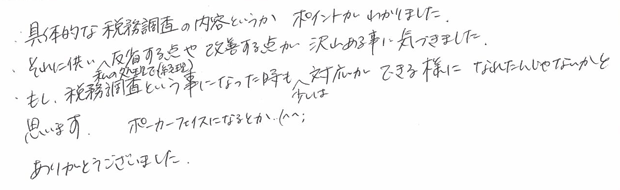 ・具体的な税務調査の内容というか ポイントがわかりました。
・それに伴い、反省する点や改善する点が沢山ある事に気づきました。
私の処理で(経理)
・もし、税務調査という事になった時も、対応ができる様になれたんじゃないかと
少しは
思います。 ポーカーフェイスになるとか。(^^;
ありがとうございました。